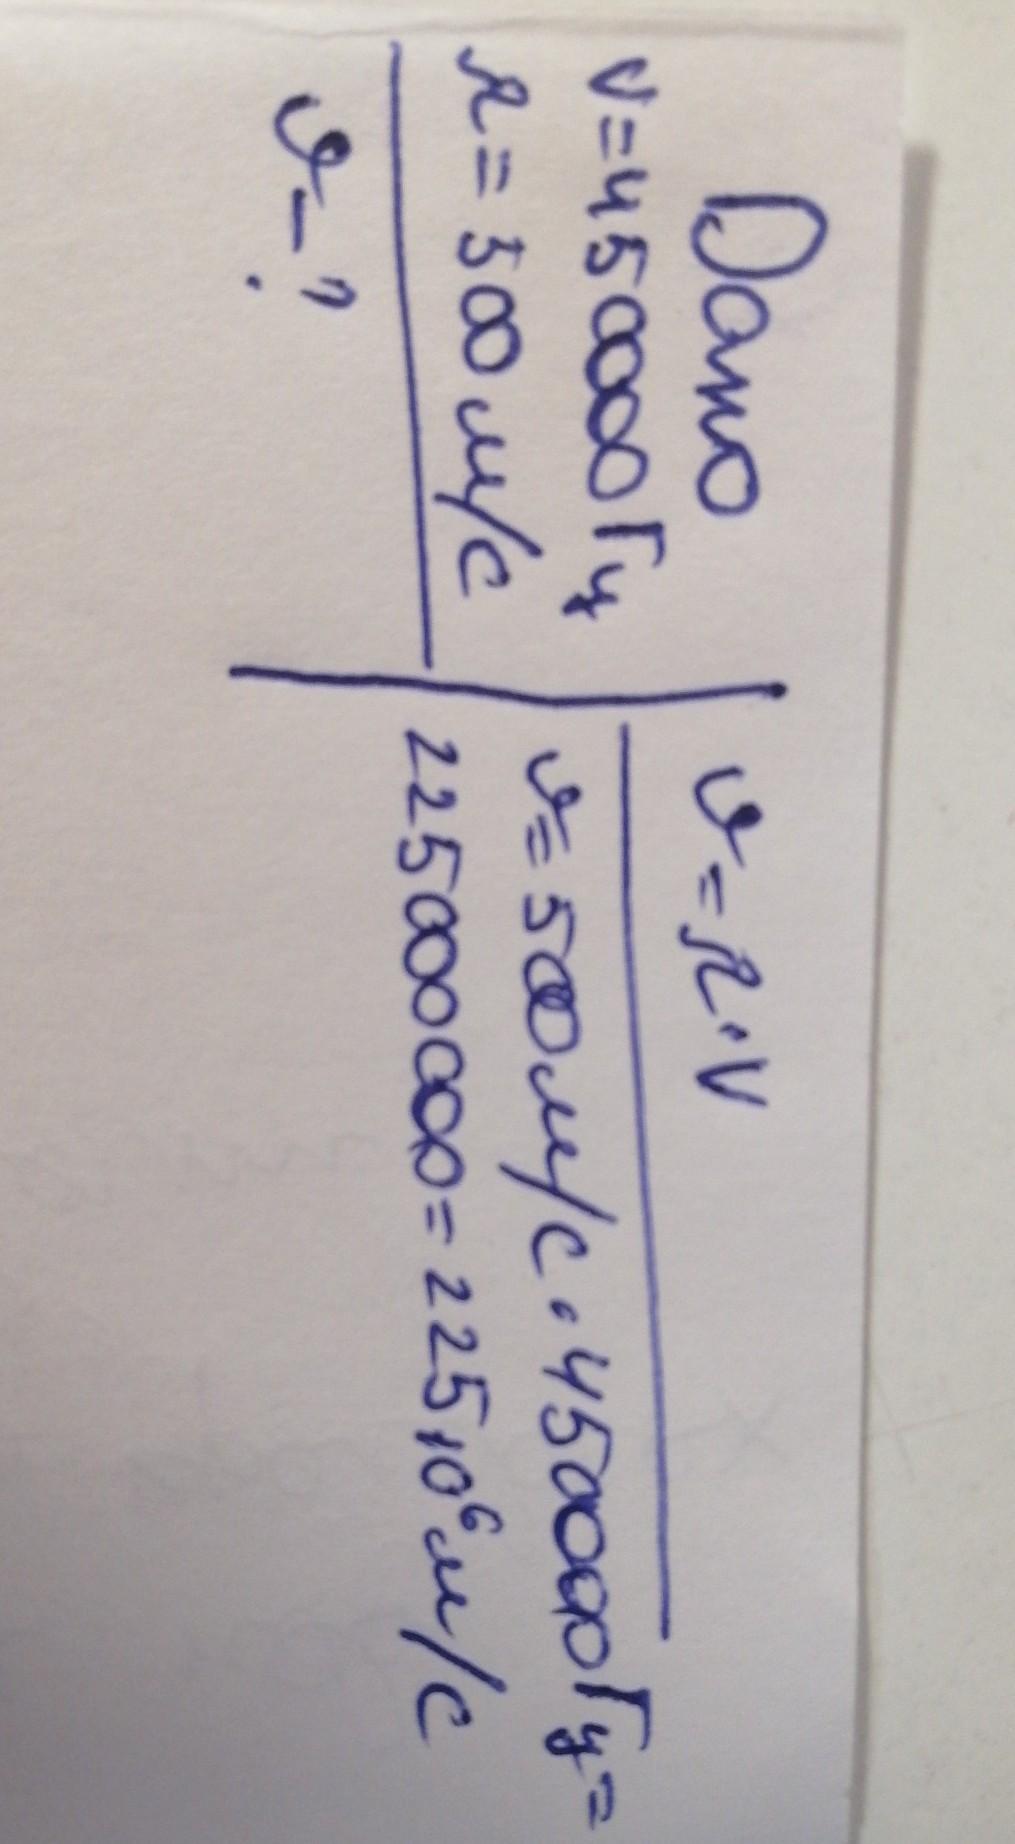 Дано
ν=450000Гц
λ=500м/с
υ-?
υ=λ·ν
υ=500м/с·450000Гц=
225000000=225·10⁶м/с